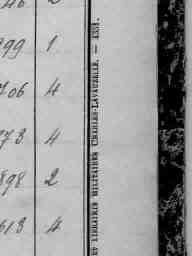 899 1
706 4
773 4
898 2
613 4
ET LIBRAIRIE MILITAIRES CHARLES-LAVAUZELLE. —